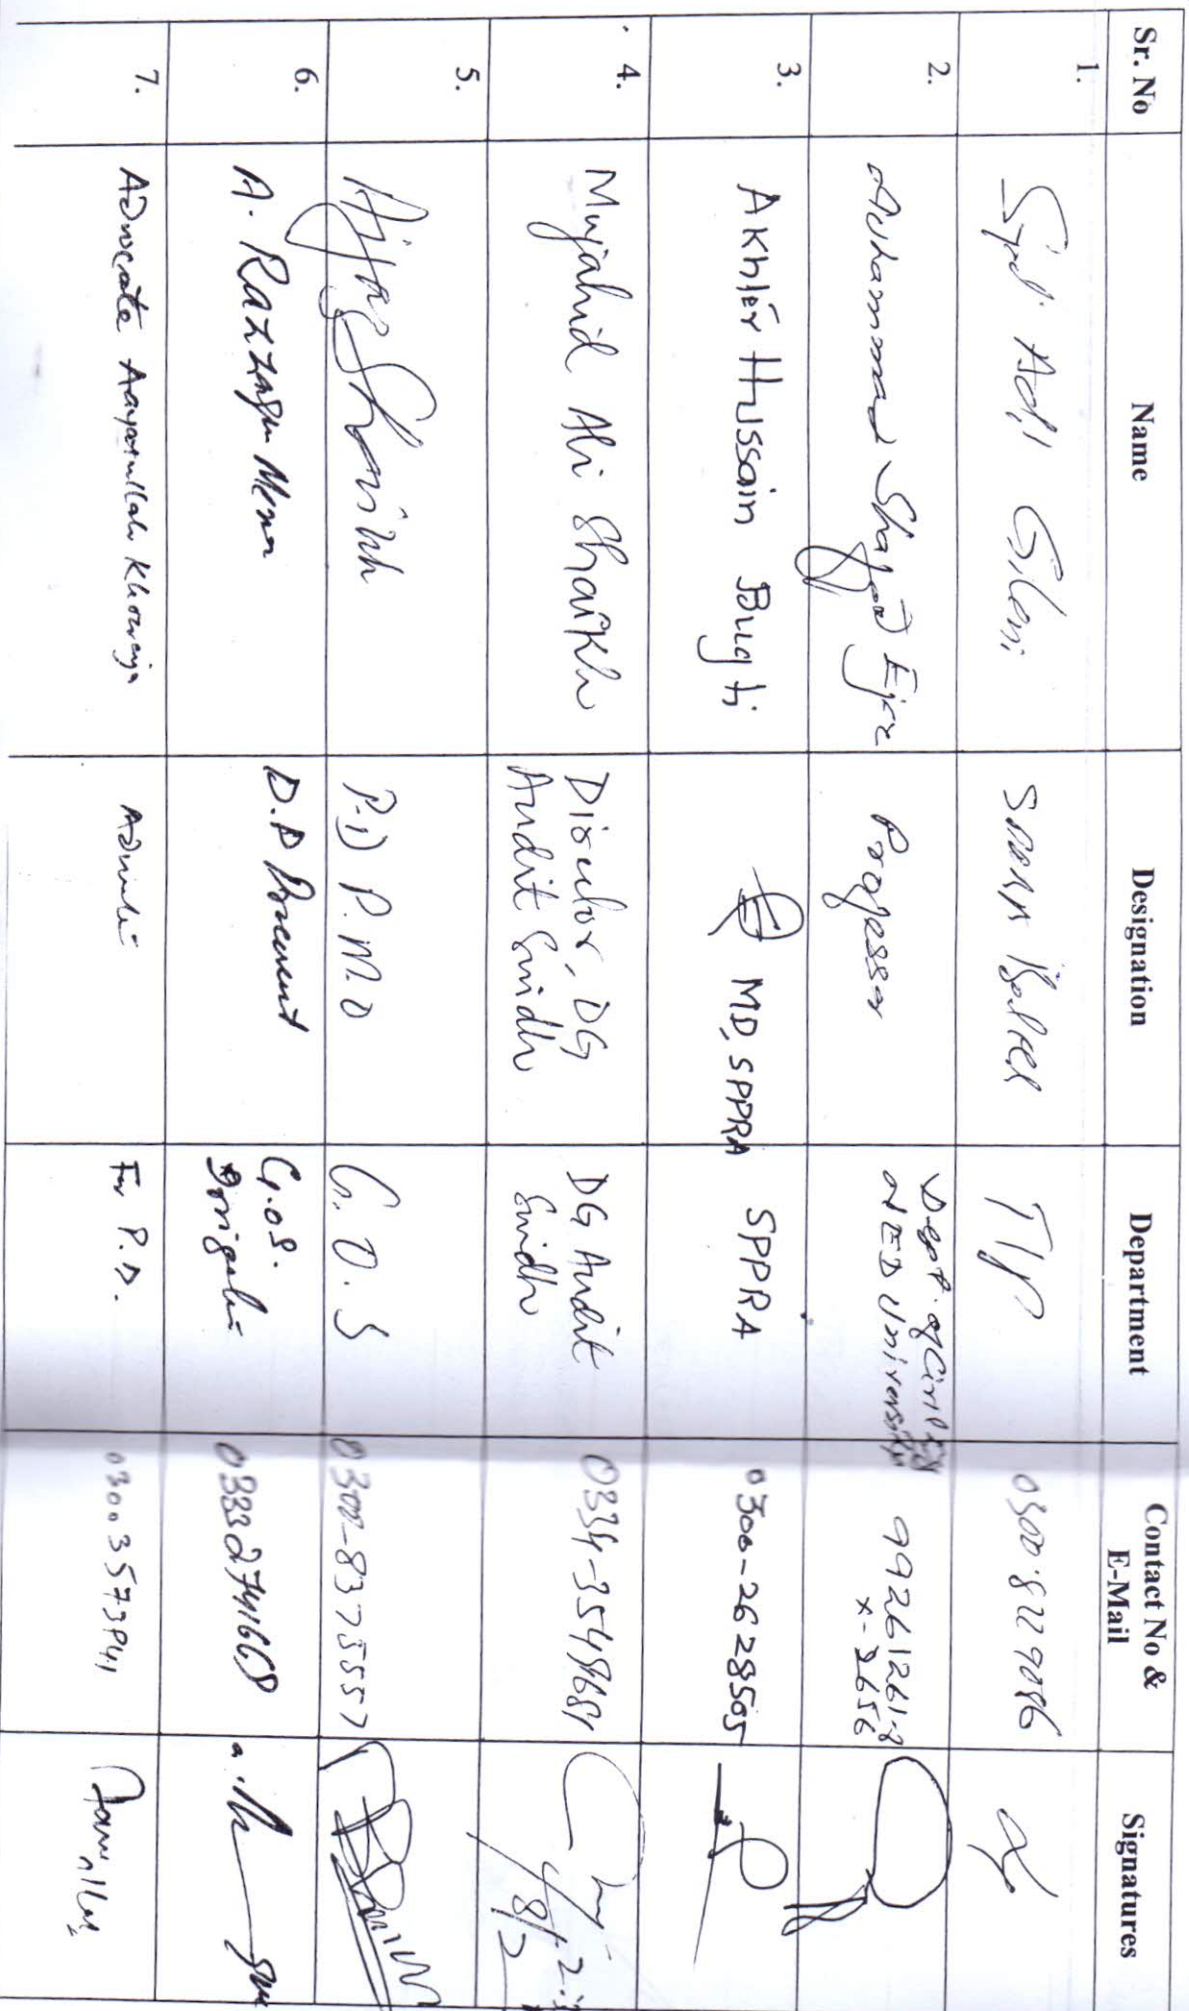 Sr. No Name Designation Department Contact No & E-Mail Signatures
1. Syed Adil Gilani SPPRA TIP 0300 8229086
2. Muhammad Ejaz Professor Dept. of Civil Engg NED University 99261261-8
x-2656
3. Akhter Hussain Bugti MD, SPPRA SPPRA 0300-2628505
4. Mujahid Ali Shaikh Director, DG
Audit Sindh DG Audit
Sindh 0334-3548681
5. Aijaz Shaikh P.D P.M.O G.O.S 0300-8375557
6. A. Razzaque Memon D.D Procument G.O.S.
Irrigation 03332741668
7. Advocate Aayatullah Khowaja Advocate For P.D. 03003573941